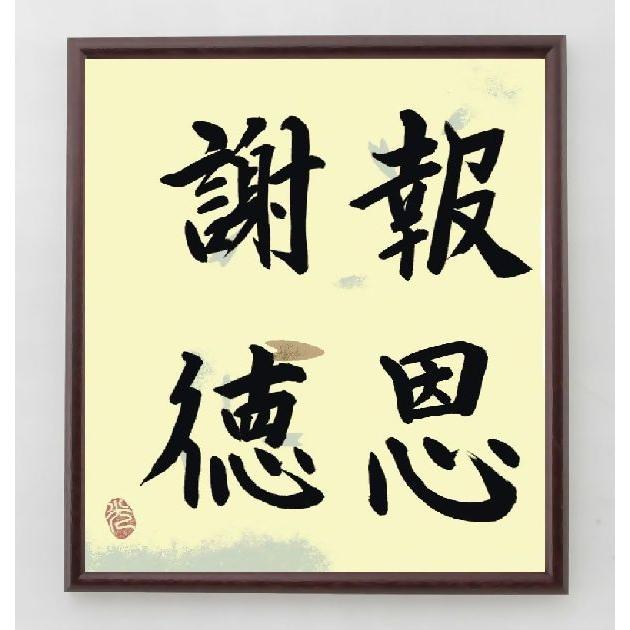 報恩
謝徳